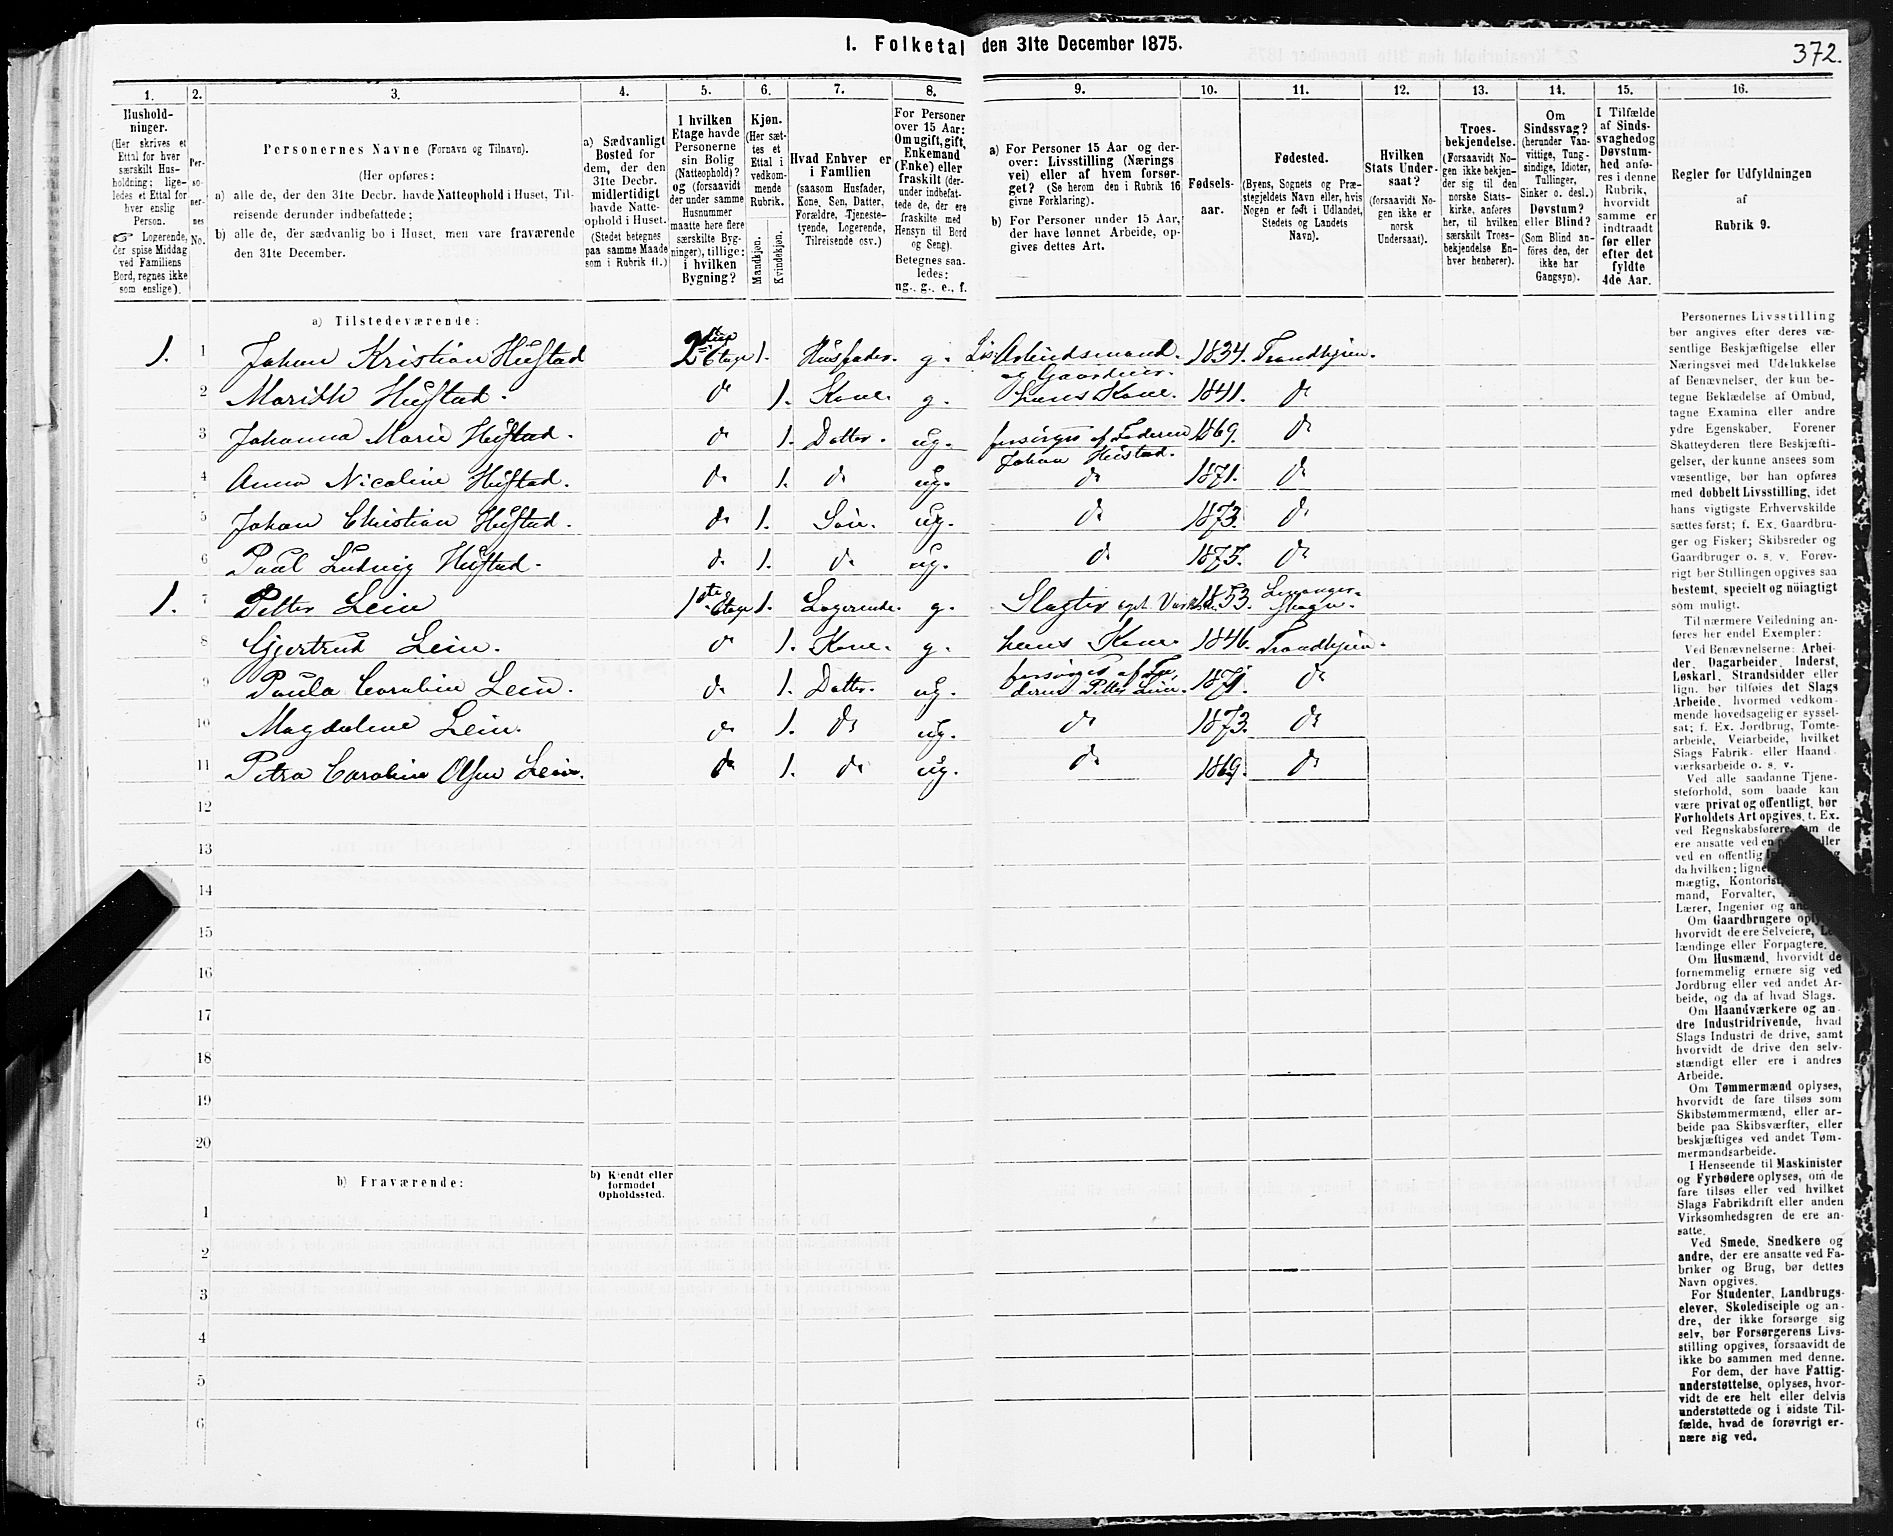 1. Folketal den 31te December 1875.
372.
1.
2.
3.
4.
5.
6.
7.
8.
9.
10.
11.
12.
13.
14.
15.
16.
Hushold-
ninger.
(Her skrives et
Ettal for hver
særskilt Hus-
holdning; lige-
ledes et Ettal for
hver enslig
Person.
☞ Logerende,
der spise Middag
ved Familiens
Bord, regnes ikke
som enslige).
Per-
so-
ner-
nes
No.
Personernes Navne (Fornavn og Tilnavn).
(Her opføres:
a) alle de, der den 31te Decbr. havde Natteophold i Huset, Til-
reisende derunder indbefattede;
b) alle de, der sædvanlig bo i Huset, men vare fraværende
den 31te December.
a) Sædvanligt
Bosted for
dem, der den
31te Decbr.
midlertidigt
havde Natte-
ophold i Huset.
(Stedet betegnes
paa samme Maade
som i Rubrik 11.)
I hvilken
Etage havde
Personerne
sin Bolig
(Natteophold)?
og (forsaavidt
der under samme
Husnummer
maatte høre flere
særskilte Byg-
ninger), tillige:
i hvilken
Bygning?
Kjøn.
(Her sæt-
tes et
Ettal i
vedkom-
mende
Rubrik.
Mandkjøn.
Kvindekjøn.
Hvad Enhver er
i Familien
(saasom Husfader,
Kone, Søn, Datter,
Forældre, Tjeneste-
tyende, Logerende,
Tilreisende osv.)
For Personer
over 15 Aar:
Om ugift, gift,
Enkemand
(Enke) eller
fraskilt (der-
under indbefat-
tede de, der ere
fraskilte med
Hensyn til Bord
og Seng).
Betegnes saa-
ledes:
ug., g., e., f.
a) For Personer 15 Aar og der-
over: Livsstilling (Nærings
vei) eller af hvem forsør-
get? (Se herom den i Rubrik 16
givne Forklaring).
b) For Personer under 15 Aar,
der have lønnet Arbeide, op-
gives dettes Art.
Fødsels-
aar.
Fødested.
(Byens, Sognets og Præ-
stegjeldets Navn eller, hvis
Nogen er født i Udlandet,
Stedets og Landets
Navn).
Hvilken
Stats Under-
saat?
(forsaavidt No-
gen ikke er
norsk
Undersaat).
Troes-
bekjendelse.
(Forsaavidt No-
gen ikke bekjen-
der sig til den
norske Stats-
kirke, anføres
her, til hvilken
særskilt Troes-
bekjendelse En-
hver henhører).
Om
Sindssvag?
(herunder Van-
vittige, Tung-
sindige, Idioter,
Tullinger,
Sinker o. desl.)
Døvstum?
eller Blind?
(Som Blind an-
føres den, der
ikke har
Gangsyn).
I Tilfælde
af Sinds-
svaghed og
Døvstum-
hed anfø-
res i denne
Rubrik,
hvorvidt
samme er
indtraadt
før eller
efter det
fyldte
4de Aar.
Regler for Udfyldningen
af
Rubrik 9.
a) Tilstedeværende:
1. 1 Johan Kristian Hustad 2den Etage 1. Husfader. g. Arbeidsmand og Gaardeier. 1834. Trondhjem.
2 Marith Hustad. do 1. Kone. g. hans Kone. 1841. do
3 Johanna Marie Hustad. do 1. Datter. ug. forsørges af Faderen Johan Hustad. 1869. do
4 Anna Nicoline Hustad. do 1. do ug. do 1871. do
5 Johan Christian Hustad. do 1. Søn. ug. do 1873. do
6 Paul Ludvig Hustad. do 1. do ug. do 1875. do
1. 7 Petter Lein 1ste Etage 1. Logerende. g. Slagter 1853.
8 Gjertrud Lein. do 1. Kone. g. hans Kone 1846. Trondhjem.
9 Paula Caroline Lein. do 1. Datter. ug. forsørges af Faderen Petter Lein. 1871. do
10 Magdalene Lein. do 1. do ug. do 1873. do
11 Petra Caroline Olsen Lein. do 1. do ug. do 1869. do
12
13
14
15
16
17
18
19
20
b) Fraværende:
b) Kjendt eller
formodet
Opholdssted.
1
2
3
4
5
6
Personernes Livsstilling
bør angives efter deres væ-
sentlige Beskjæftigelse eller
Næringsvei med Udelukkelse
af Benævnelser, der kun be-
tegne Beklædelse af Ombud,
tagne Examina eller andre
ydre Egenskaber. Forener
Skatteyderen flere Beskjæfti-
gelser, der kunne ansees som
væsentlige, bør han opføres
med dobbelt Livsstilling, idet
hans vigtigste Erhvervskilde
sættes først; f. Ex. Gaardbru-
ger og Fisker; Skibsreder og
Gaardbruger o. s. v. Forøv-
rigt bør Stillingen opgives saa
bestemt, specielt og nöiagtigt
som muligt.
Til nærmere Veiledning an-
føres her endel Exempler:
Ved Benævnelserne: Arbei-
der, Dagarbeider, Inderst,
Løskarl, Strandsidder eller
lign. bør tilføies det Slags
Arbeide, hvormed vedkom-
mende hovedsagelig er syssel-
sat; f. Ex. Jordbrug, Tomte-
arbeide, Veiarbeide, hvilket
Slags Fabrik- eller Haand-
værksarbeide o. s. v.
Ved alle saadanne Tjene-
steforhold, som baade kan
være privat og offentligt, bør
Forholdets Art opgives, t. Ex.
ved Regnskabsførere, om de
ere ansatte ved en eller
ved en offentlig
da hvilken;
mægtig, Kontorist,
mand, Forvalter,
Lærer, Ingeniør og
Om Gaardbrugere
hvorvidt de ere Selveiere,
lændinge eller Forpagtere.
Om Husmænd, hvorvidt de
fornemmelig ernære sig ved
Jordbrug eller ved andet Ar-
beide, og da af hvad Slags.
Om Haandværkere og an-
dre Industridrivende, hvad
Slags Industri de drive, samt
hvorvidt de drive den selv-
stændigt eller ere i andres
Arbeide.
Om Tømmermænd oplyses,
hvorvidt de fare tilsøs som
Skibstømmermænd, eller ar-
beide paa Skibsværfter, eller
beskjæftiges ved andet Tøm-
mermandsarbeide.
I Henseende til Maskinister
og Fyrbødere oplyses, om de
fare tilsøs eller ved hvilket
Slags Fabrikdrift eller anden
Virksomhedsgren de ere an-
satte.
Ved Smede, Snedkere og
andre, der ere ansatte ved Fa-
briker og Brug, bør dettes
Navn opgives.
For Studenter, Landbrugs-
elever, Skoledisciple og an-
dre, der ikke forsørge sig
selv, bør Forsørgerens Livs-
stilling opgives, forsaavidt de
ikke bo sammen med denne.
For dem, der have Fattig-
understøttelse, oplyses, hvor-
vidt de ere helt eller delvis
understøttede og i sidste Til-
fælde, hvad de forøvrigt er-
nære sig ved.